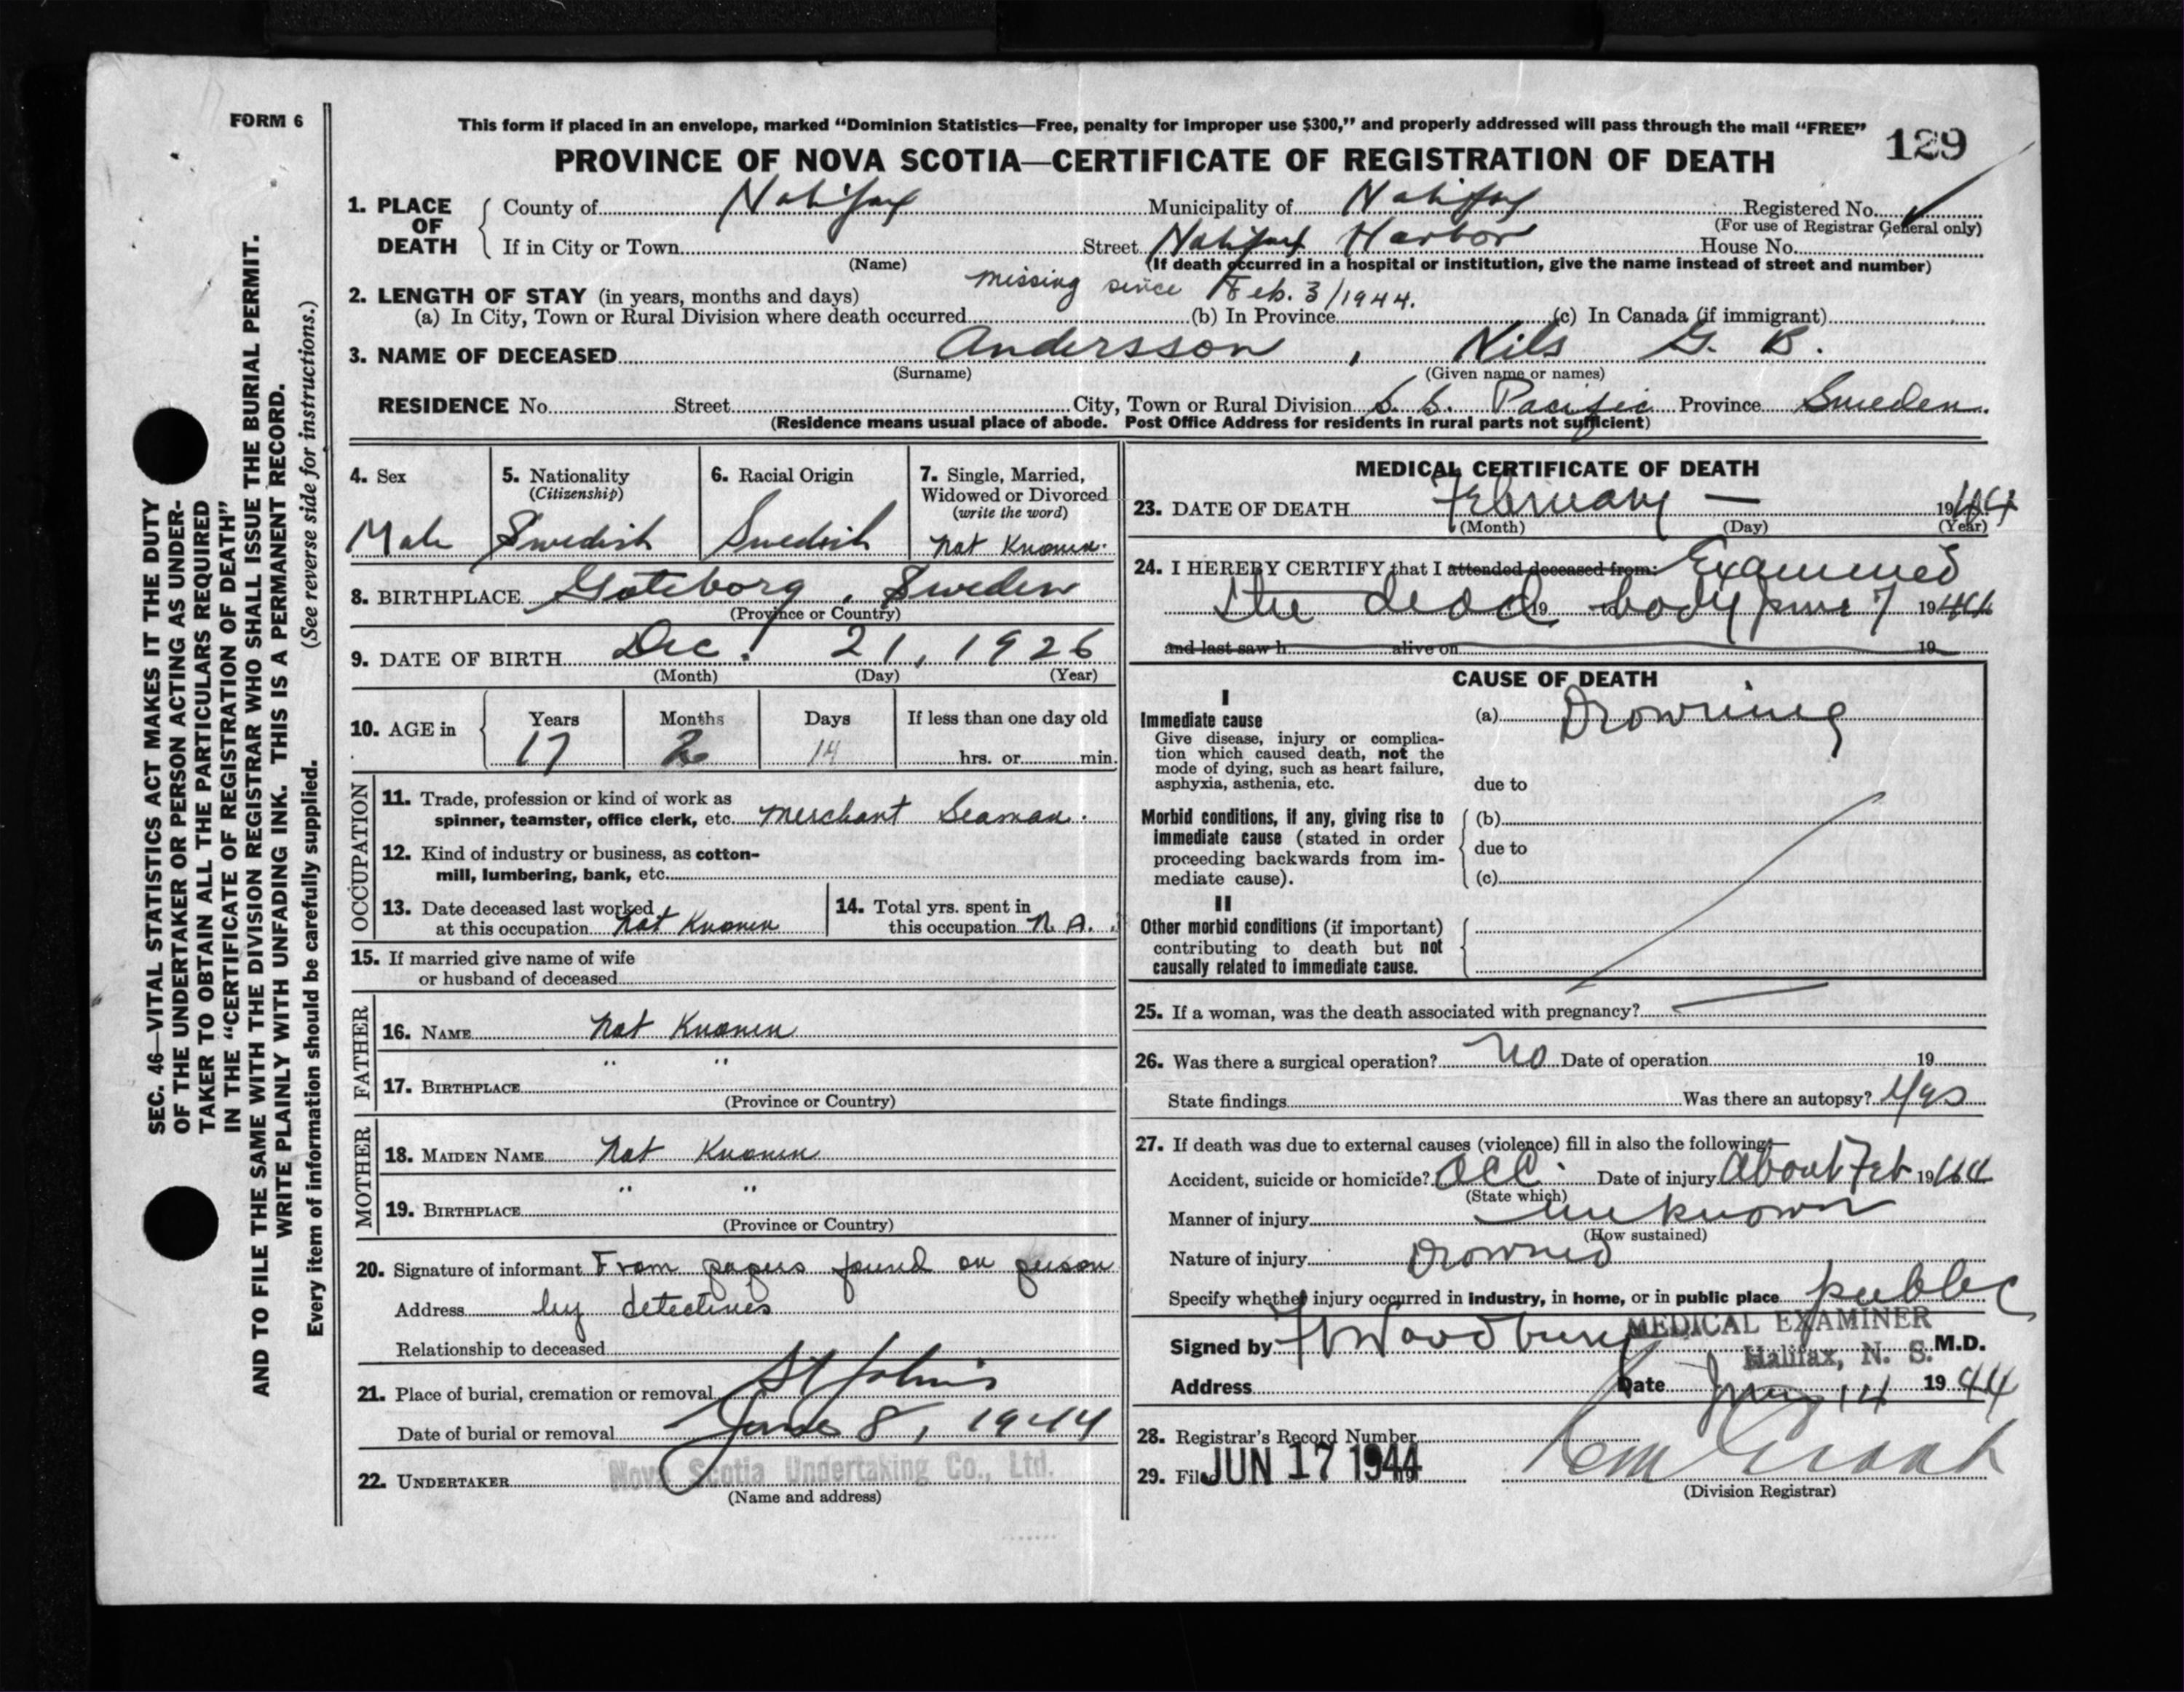 FORM 6
This form if placed in an envelope, marked “Dominion Statistics—Free, penalty for improper use $300,” and properly addressed will pass through the mail “FREE”
129
PROVINCE OF NOVA SCOTIA—CERTIFICATE OF REGISTRATION OF DEATH
1. PLACE OF DEATH
County of Halifax Municipality of Halifax Registered No.
(For use of Registrar General only)
If in City or Town Street Halifax Harbor House No.
(Name) (If death occurred in a hospital or institution, give the name instead of street and number)
missing since Feb. 3/1944.
2. LENGTH OF STAY (in years, months and days)
(a) In City, Town or Rural Division where death occurred (b) In Province (c) In Canada (if immigrant)
3. NAME OF DECEASED Andersson, Nils G. B.
(Surname) (Given name or names)
RESIDENCE No. Street City, Town or Rural Division S. S. Pacific Province Sweden.
(Residence means usual place of abode. Post Office Address for residents in rural parts not sufficient)
4. Sex
Male
5. Nationality
(Citizenship)
Swedish
6. Racial Origin
Swedish
7. Single, Married,
Widowed or Divorced
(write the word)
Not Known.
8. BIRTHPLACE Goteborg, Sweden
(Province or Country)
9. DATE OF BIRTH Dec. 21, 1926
(Month) (Day) (Year)
10. AGE in
Years Months Days If less than one day old
17 2 14 hrs. or min.
OCCUPATION
11. Trade, profession or kind of work as
spinner, teamster, office clerk, etc. Merchant Seaman.
12. Kind of industry or business, as cotton-
mill, lumbering, bank, etc.
13. Date deceased last worked
at this occupation Not Known
14. Total yrs. spent in
this occupation N. A.
15. If married give name of wife
or husband of deceased
FATHER
16. NAME Not Known
" "
17. BIRTHPLACE
(Province or Country)
MOTHER
18. MAIDEN NAME Not Known
" "
19. BIRTHPLACE
(Province or Country)
20. Signature of informant From papers found on person
Address by detectives
Relationship to deceased
21. Place of burial, cremation or removal St Johns
Date of burial or removal June 8, 1944
22. UNDERTAKER Nova Scotia Undertaking Co., Ltd.
(Name and address)
MEDICAL CERTIFICATE OF DEATH
23. DATE OF DEATH February — 1944
(Month) (Day) (Year)
24. I HEREBY CERTIFY that I attended deceased from: Examined
the dead 19 to body June 7 1944
and last saw h alive on 19
CAUSE OF DEATH
I
Immediate cause
Give disease, injury or complica-
tion which caused death, not the
mode of dying, such as heart failure,
asphyxia, asthenia, etc.
(a) Drowning
due to
Morbid conditions, if any, giving rise to
immediate cause (stated in order
proceeding backwards from im-
mediate cause).
(b)
due to
(c)
II
Other morbid conditions (if important)
contributing to death but not
causally related to immediate cause.
25. If a woman, was the death associated with pregnancy?
26. Was there a surgical operation? No Date of operation 19
State findings Was there an autopsy? Yes
27. If death was due to external causes (violence) fill in also the following:—
Accident, suicide or homicide? Acc. Date of injury About Feb 1944
(State which)
Manner of injury Unknown
(How sustained)
Nature of injury Drowned
Specify whether injury occurred in industry, in home, or in public place public
MEDICAL EXAMINER
Signed by Woodbury M.D.
Halifax, N. S.
Address Date 14 1944
28. Registrar's Record Number
29. Filed JUN 17 1944 19
(Division Registrar)
SEC. 46—VITAL STATISTICS ACT MAKES IT THE DUTY
OF THE UNDERTAKER OR PERSON ACTING AS UNDER-
TAKER TO OBTAIN ALL THE PARTICULARS REQUIRED
IN THE “CERTIFICATE OF REGISTRATION OF DEATH”
AND TO FILE THE SAME WITH THE DIVISION REGISTRAR WHO SHALL ISSUE THE BURIAL PERMIT.
WRITE PLAINLY WITH UNFADING INK. THIS IS A PERMANENT RECORD.
(See reverse side for instructions.)
Every item of information should be carefully supplied.